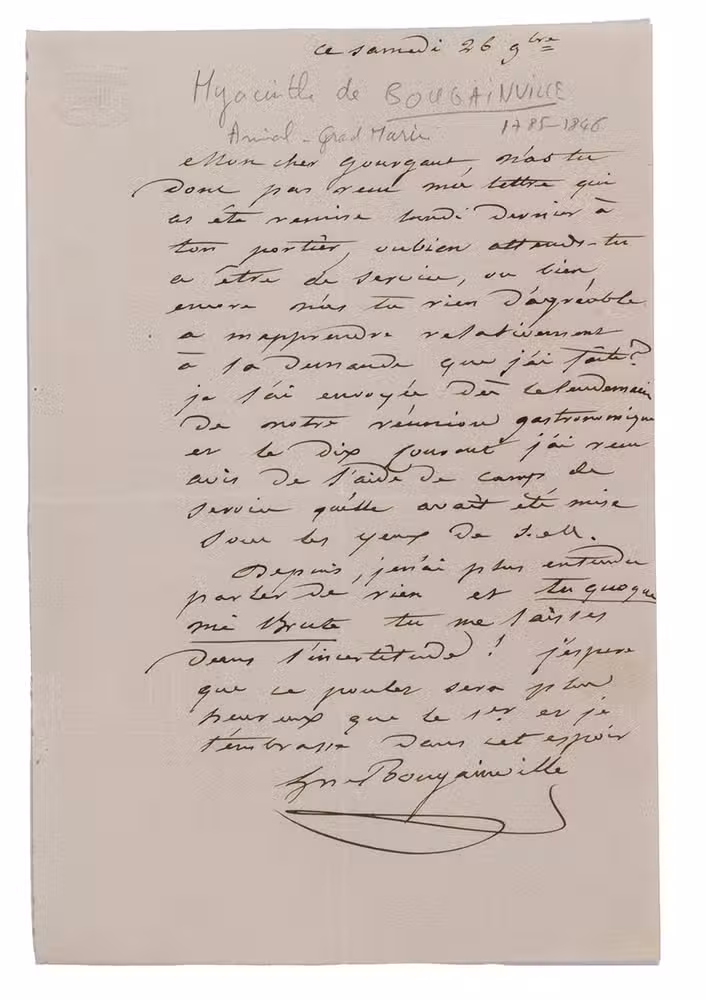 ce samedi 26 9bre
Hyacinthe de BOUGAINVILLE
Amiral - Grad Marin
1785-1846
Mon cher Gourgaut n'as tu
donc pas reçu ma lettre qui
as été remise lundi dernier à
ton portier, oubien attends-tu
a être de service, ou bien
encore n'as tu rien d'agréable
a m'apprendre relativement
à la demande que j'ai faite?
je l'ai envoyée dès le lendemain
de notre réunion gastronomique
et le dix courant j'ai reçu
avis de l'aide de camp de
service qu'elle avait été mise
sous les yeux de S.M.
Depuis, je n'ai plus entendu
parler de rien et tu quoque
mi Brute tu me laisses
dans l'incertitude! j'espère
que ce poulet sera plus
heureux que le 1er et je
t'embrasse dans cet espoir
Bougainville